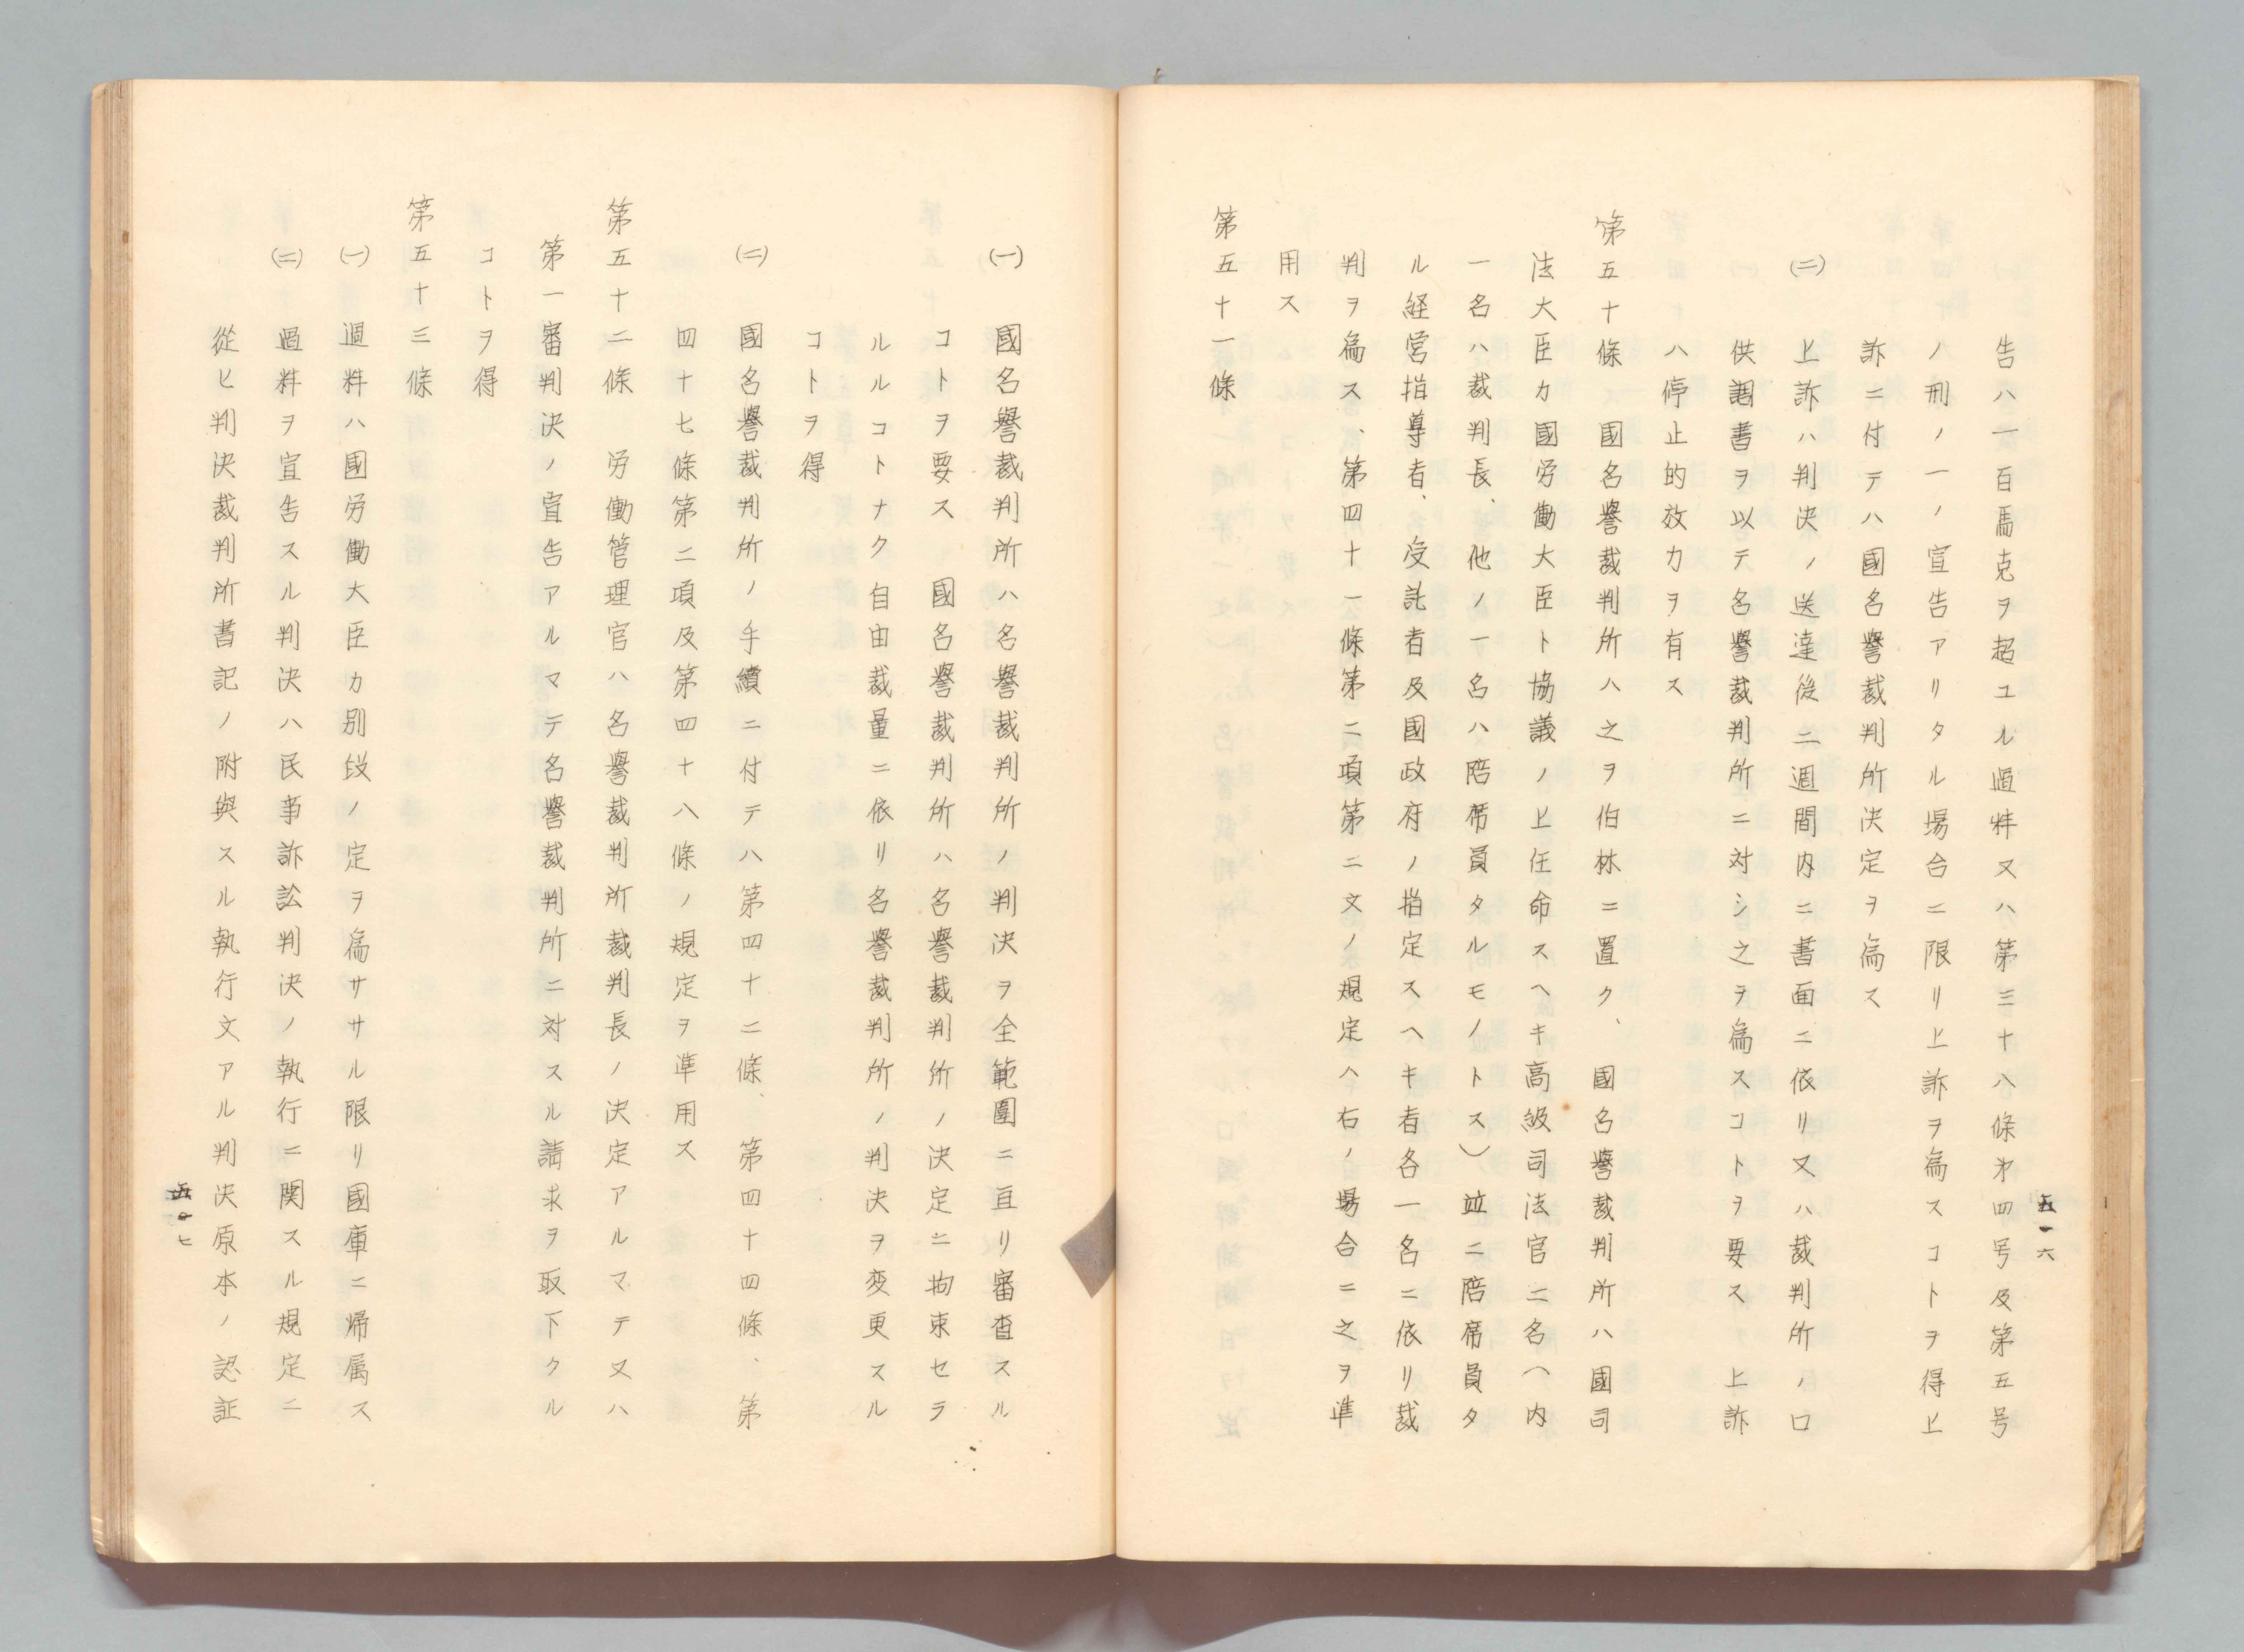 告ハ一百馬克ヲ超ユル過料又ハ第三十八條第四号及第五号
ノ刑ノ一ノ宣告アリタル場合ニ限リ上訴ヲ為スコトヲ得上
訴ニ付テハ國名譽裁判所決定ヲ為ス
㈡ 上訴ハ判決ノ送達後二週間内ニ書面ニ依リ又ハ裁判所ノ口
供調書ヲ以テ名譽裁判所ニ対シ之ヲ為スコトヲ要ス 上訴
ハ停止的效力ヲ有ス
第五十條 國名譽裁判所ハ之ヲ伯林ニ置ク、國名譽裁判所ハ國司
法大臣カ國労働大臣ト協議ノ上任命スヘキ高級司法官二名(内
一名ハ裁判長、他ノ一名ハ陪席員タルモノトス)竝ニ陪席員タ
ル経営指導者、受託者及國政府ノ指定スヘキ者各一名ニ依リ裁
判ヲ為ス、第四十一條第二項第二文ノ規定ハ右ノ場合ニ之ヲ準
用ス
第五十一條
五一六
㈠ 國名譽裁判所ハ名譽裁判所ノ判決ヲ全範圍ニ亘リ審査スル
コトヲ要ス 國名譽裁判所ハ名譽裁判所ノ決定ニ拘束セラ
ルルコトナク自由裁量ニ依リ名譽裁判所ノ判決ヲ変更スル
コトヲ得
㈡ 國名譽裁判所ノ手續ニ付テハ第四十二條、第四十四條、第
四十七條第二項及第四十八條ノ規定ヲ準用ス
第五十二條 労働管理官ハ名譽裁判所裁判長ノ決定アルマテ又ハ
第一審判決ノ宣告アルマテ名譽裁判所ニ対スル請求ヲ取下クル
コトヲ得
第五十三條
㈠ 過料ハ國労働大臣カ別段ノ定ヲ為ササル限リ國庫ニ帰属ス
㈡ 過料ヲ宣告スル判決ハ民事訴訟判決ノ執行ニ関スル規定ニ
從ヒ判決裁判所書記ノ附與スル執行文アル判決原本ノ認証
五一七